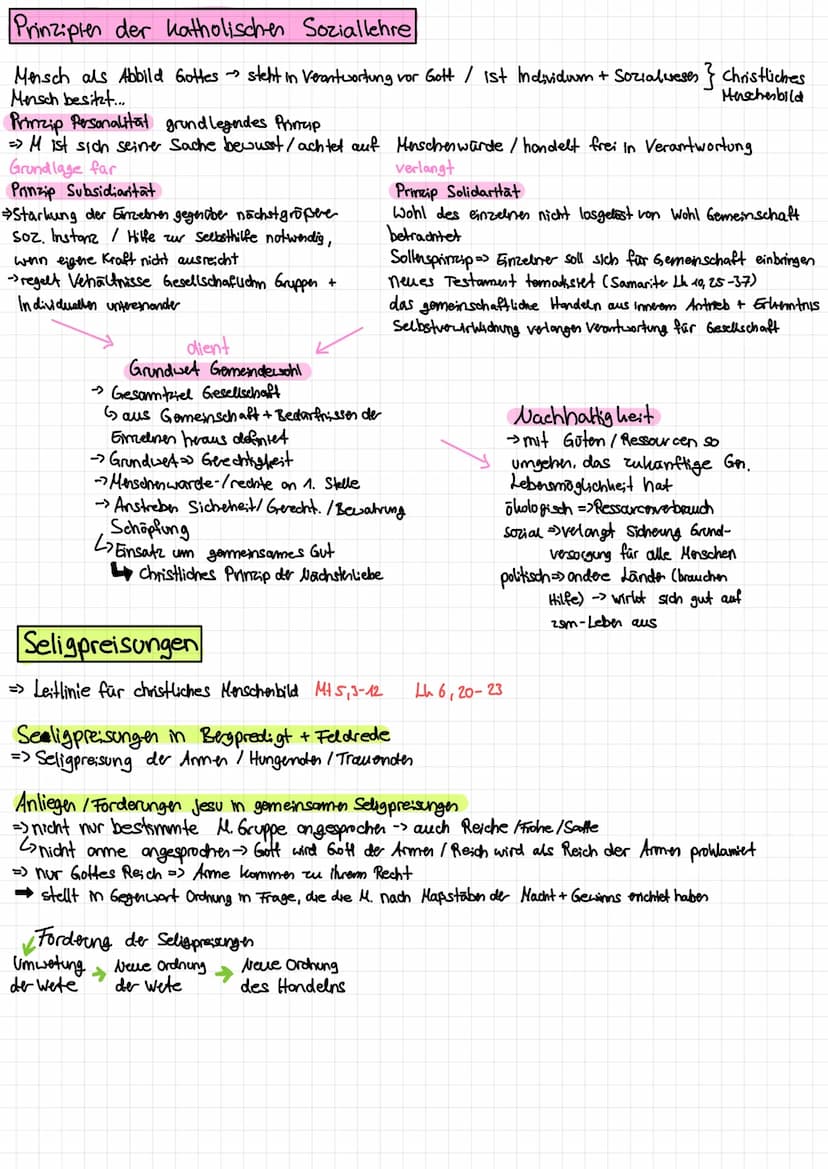 Prinzipien der katholischen Soziallehre
Mensch als Abbild Gottes → steht in Verantwortung vor Gott / ist Individuum + Sozialwesen } Christliches
Menschenbild
Mensch besitzt...
Prinzip Personalität grundlegendes Prinzip
=> M ist sich seiner Sache bewusst / achtet auf Menschenwürde / handelt frei in Verantwortung
Grundlage für
Prinzip Subsidiarität
=> Stärkung der Einzelnen gegenüber nächstgrößere
soz. Instanz / Hilfe zur Selbsthilfe notwendig,
wenn eigene Kraft nicht ausreicht
→ regelt Verhältnisse Gesellschaftlichn Gruppen +
Individuellen untereinander
verlangt
Prinzip Solidarität
Wohl des einzelnen nicht losgelöst von Wohl Gemeinschaft
betrachtet
Sollensprinzip => Einzelner soll sich für Gemeinschaft einbringen
neues Testament (Samariter Lk 10, 25-37)
das gemeinschaftliche Handeln aus innerem Antrieb + Erkenntnis
Selbstverwirklichung verlangen Verantwortung für Gesellschaft
dient
Grundwert Gemeindewohl
→ Gesamtziel Gesellschaft
↳ aus Gemeinschaft + Bedürfnissen der
Einzelnen heraus definiert
→ Grundwert => Gerechtigkeit
→ Menschenwürde-/rechte an 1. Stelle
→ Anstreben Sicherheit / Gerecht. / Bewahrung
Schöpfung
↳ Einsatz um gemeinsames Gut
↳ Christliches Prinzip der Nächstenliebe
Nachhaltigkeit
→ mit Gütern / Ressourcen so
umgehen, das zukünftige Gen.
Lebensmöglichkeit hat
ökologisch => Ressourcenverbrauch
sozial => verlangt Sicherung Grund-
versorgung für alle Menschen
politisch => andere Länder (brauchen
Hilfe) → wirkt sich gut auf
zsm-Leben aus
Seligpreisungen
=> Leitlinie für christliches Menschenbild Mt 5,3-12 Lk 6, 20-23
Seeligpreisungen in Bergpredigt + Feldrede
=> Seligpreisung der Armen / Hungernden / Trauernden
Anliegen / Forderungen Jesu in gemeinsamen Seligpreisungen
=> nicht nur bestimmte M. Gruppe angesprochen → auch Reiche / Frohe / Satte
↳ nicht arme angesprochen → Gott wird Gott der Armen / Reich wird als Reich der Armen proklamiert
=> nur Gottes Reich => Arme kommen zu ihrem Recht
➡ stellt in Gegenwart Ordnung in Frage, die die M. nach Maßstäben der Macht + Gewinns errichtet haben
Forderung der Seligpreisungen
Umwertung der Werte → Neue Ordnung der Werte → Neue Ordnung des Handelns